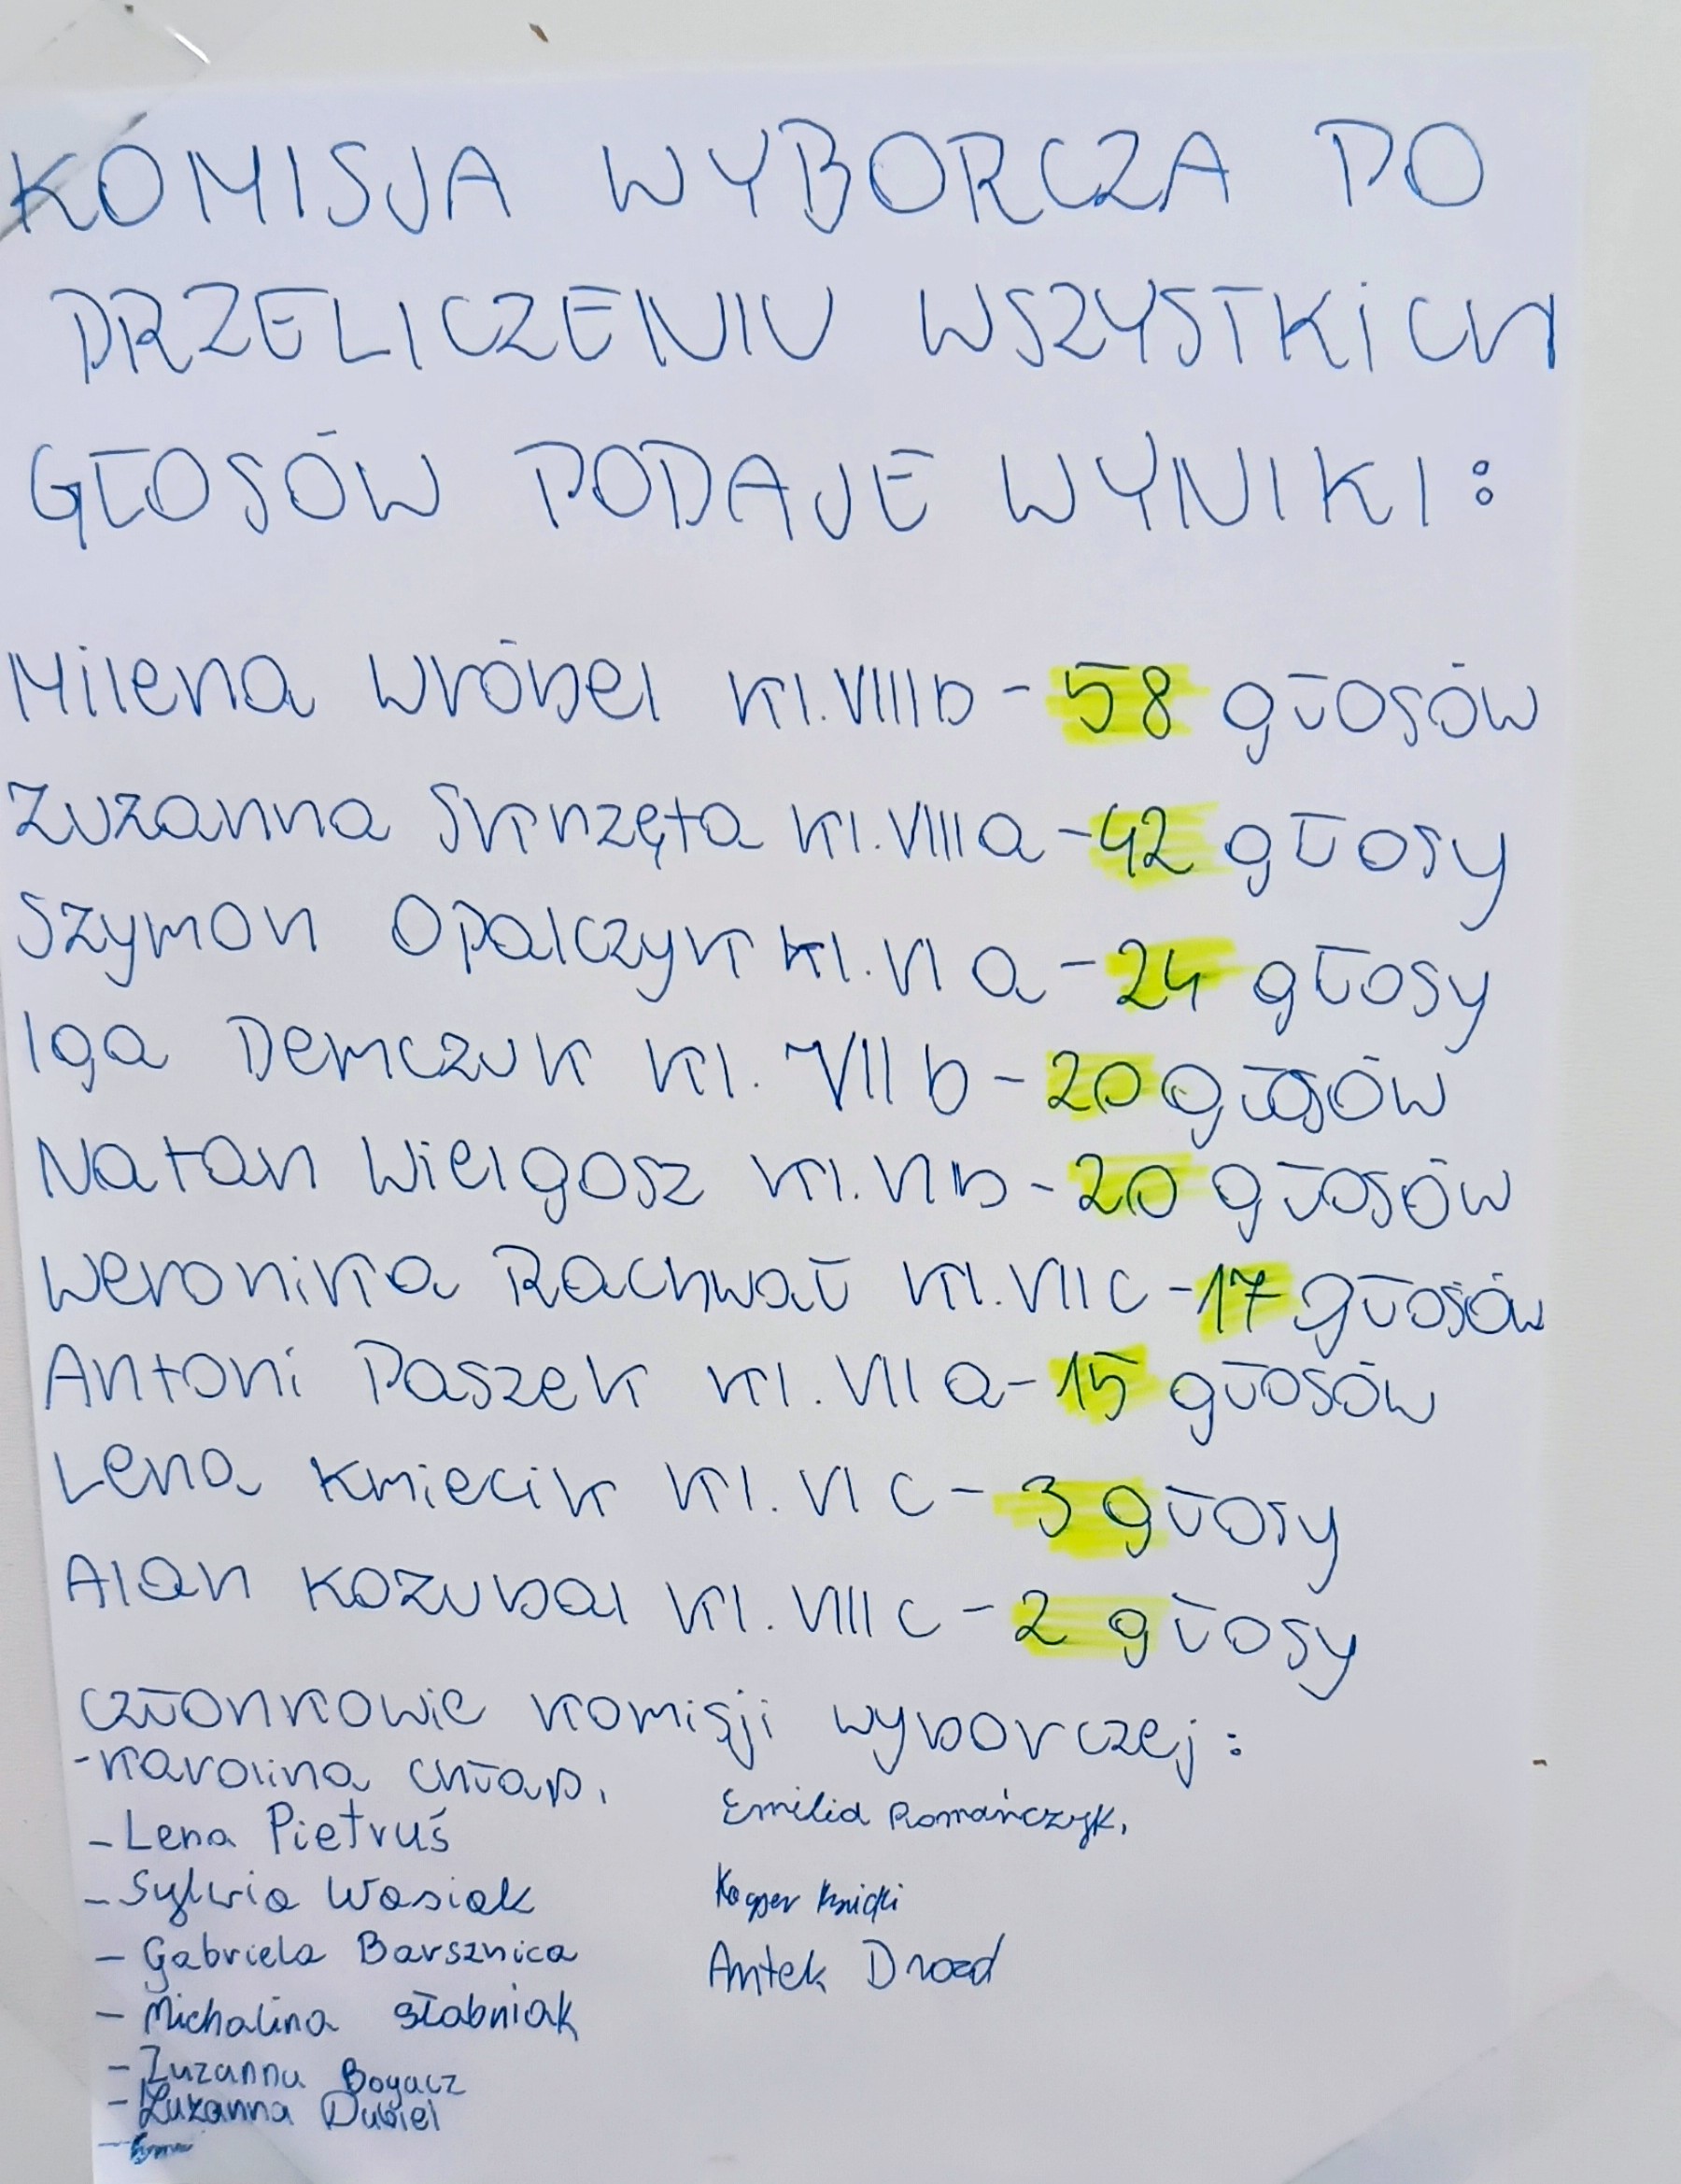 KOMISJA WYBORCZA PO
PRZELICZENIU WSZYSTKiCH
GŁOSÓW PODAJE WYNIKI:
Milena Wróbel kl. VIII b - 58 głosów
Zuzanna Skrzęta kl. VIII a - 42 głosy
Szymon Opalczyk kl. VI a - 24 głosy
Iga Demczuk kl. VII b - 20 głosów
Natan Wielgosz kl. VI b - 20 głosów
Weronika Rachwał kl. VII c - 17 głosów
Antoni Paszek kl. VII a - 15 głosów
Lena Kmiecik kl. VI c - 3 głosy
Alan Kozubal kl. VIII c - 2 głosy
członkowie komisji wyborczej:
- Karolina Chłap.
- Lena Pietruś
- Sylwia Wasiak
- Gabriela Barsznica
- Michalina Słabniak
- Zuzanna Bogacz
- Zuzanna Dubiel
Emilia Romańczyk.
Kacper
Antek Drozd